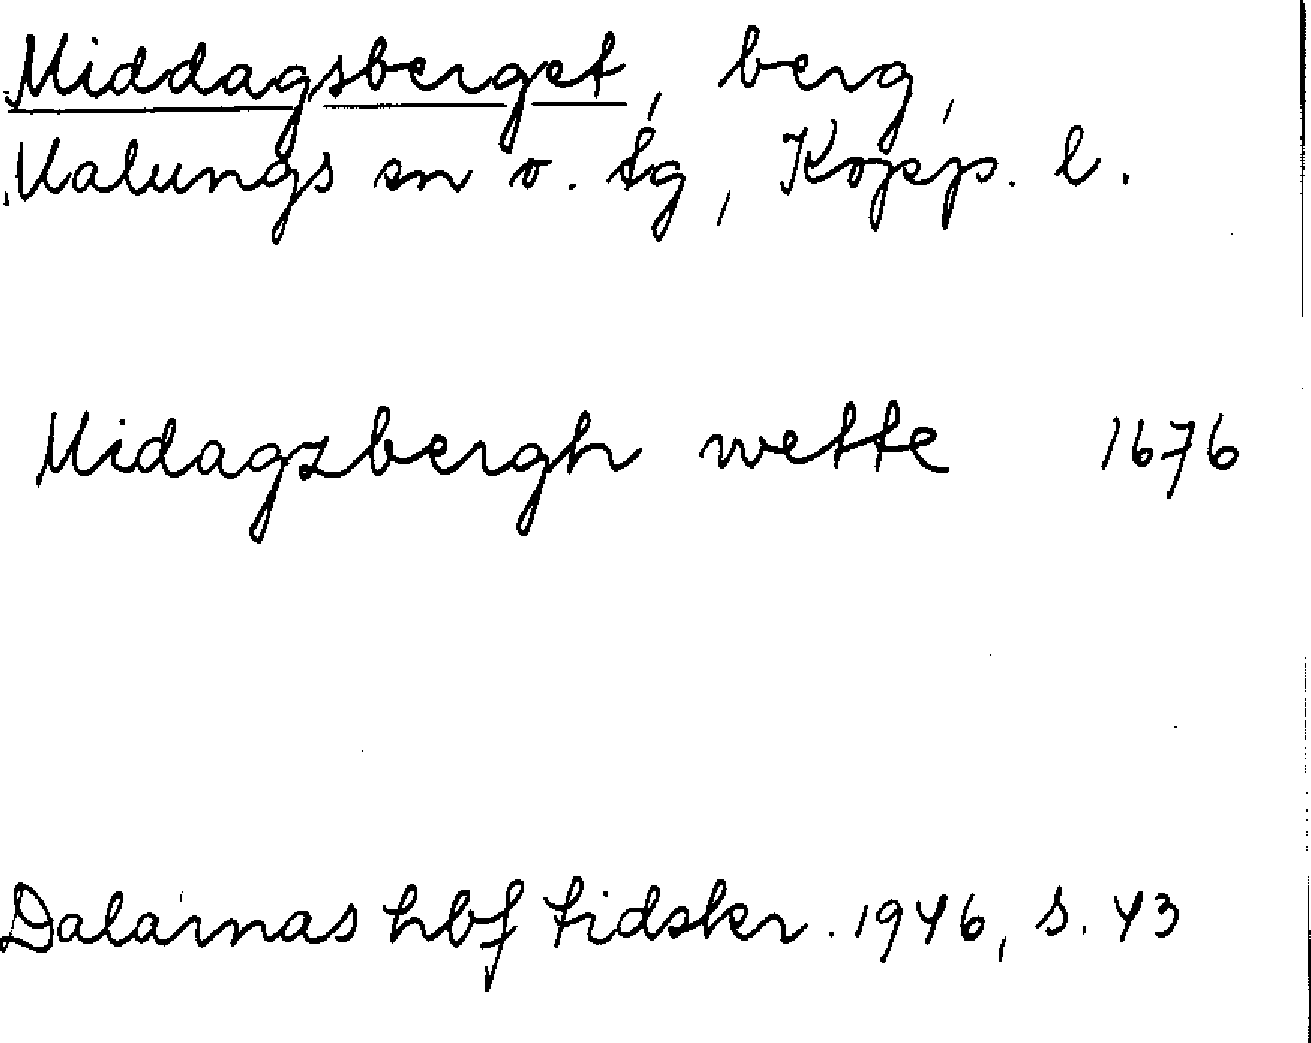 Middagsberget, berg,
Malungs sn o. tg, Kopp. l.
Midagzbergh wette 1676
Dalarnas hbf tidskr. 1946, s. 43